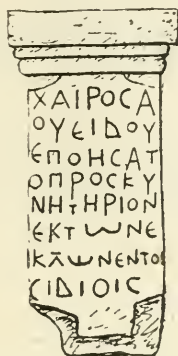 ΧΑΙΡΟCΑ
ΟΥΕΙΔΟΥ
ΕΠΟΗCΑΤ
ΟΠΡΟCΚΥ
ΝΗΤΗΡΙΟΝ
ΕΚΤωΝΕ
ΙΚΑωΝΕΝΤΟ
CΙΔΙΟΙC